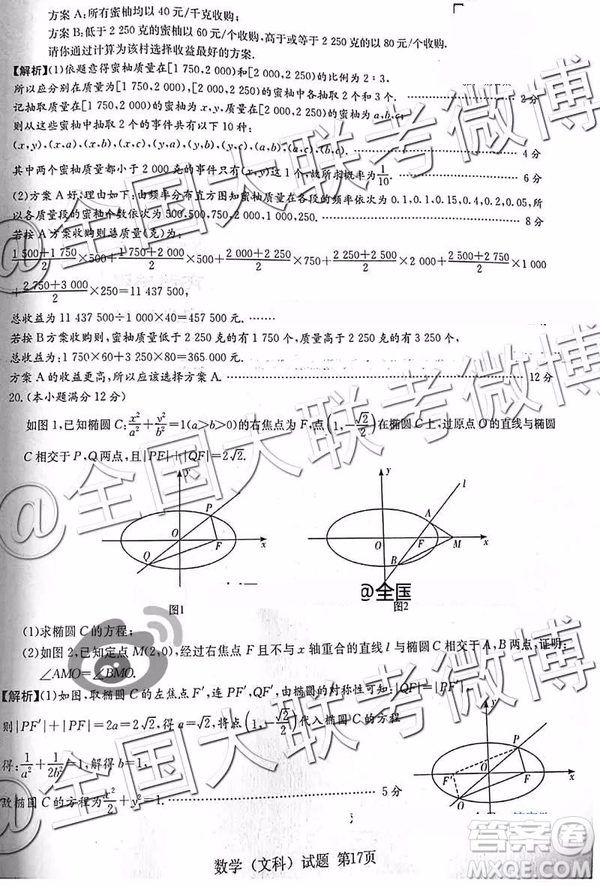 方案 A:所有蜜柚均以 40 元/千克收购;
方案 B:低于 2 250 克的蜜柚以 60 元/个收购,高于或等于 2 250 克的以 80 元/个收购.
请你通过计算为该村选择收益最好的方案.
【解析】(1)依题意得蜜柚质量在[1 750,2 000)和[2 000,2 250)的比例为 2∶3,
所以应分别在质量为[1 750,2 000),[2 000,2 250)的蜜柚中各抽取 2 个和 3 个. 2分
记抽取质量在[1 750,2 000)的蜜柚为 x,y,质量在[2 000,2 250)的蜜柚为 a,b,c,
则从这些蜜柚中抽取 2 个的事件共有以下 10 种:
(x,y),(x,a),(x,b),(x,c),(y,a),(y,b),(y,c),(a,b),(a,c),(b,c). 4 分
其中两个蜜柚质量都小于 2 000 克的事件只有(x,y)这 1 个,故所求概率为 1/10. 6 分
(2)方案 A 好;理由如下:由频率分布直方图知蜜柚质量在各段的频率依次为 0.1,0.1,0.15,0.4,0.2,0.05,所
以各质量段的蜜柚个数依次为 500,500,750,2 000,1 000,250. 8 分
若按 A 方案收购则总质量(克)为:
(1 500+1 750)/2×500+(1 750+2 000)/2×500+(2 000+2 250)/2×750+(2 250+2 500)/2×2 000+(2 500+2 750)/2×1 000
+(2 750+3 000)/2×250=11 437 500,
总收益为 11 437 500÷1 000×40=457 500 元.
若按 B 方案收购则,蜜柚质量低于 2 250 克的有 1 750 个,质量高于 2 250 克的有 3 250 个.
总收益为:1 750×60+3 250×80=365 000 元.
方案 A 的收益更高,所以应选择方案 A. 12 分
20.(本小题满分 12 分)
如图 1,已知椭圆 C:x²/a²+y²/b²=1(a>b>0)的右焦点为 F,点(1,-√2/2)在椭圆 C 上,过原点 O 的直线与椭圆
C 相交于 P,Q 两点,且|PF|+|QF|=2√2.
y
P
O
F
x
Q
图1
y
l
A
O
F
M
x
B
@全国
图2
(1)求椭圆 C 的方程;
(2)如图 2,已知定点 M(2,0),经过右焦点 F 且不与 x 轴重合的直线 l 与椭圆 C 相交于 A,B 两点,证明:
∠AMO=∠BMO.
【解析】(1)如图,取椭圆 C 的左焦点 F′,连 PF′,QF′,由椭圆的对称性可知:|PF′|=|QF|,
则|PF′|+|PF|=2a=2√2,得 a=√2,将点(1,-√2/2)代入椭圆 C 的方程
得:1/a²+1/2b²=1,解得 b=1,
故椭圆 C 的方程为x²/2+y²=1. 5 分
y
P
F′
O
F
x
Q
数学(文科)试题 第17页
@全国大联考微博
@全国大联考微博
@全国大联考微博
答案圈
MXQE.COM